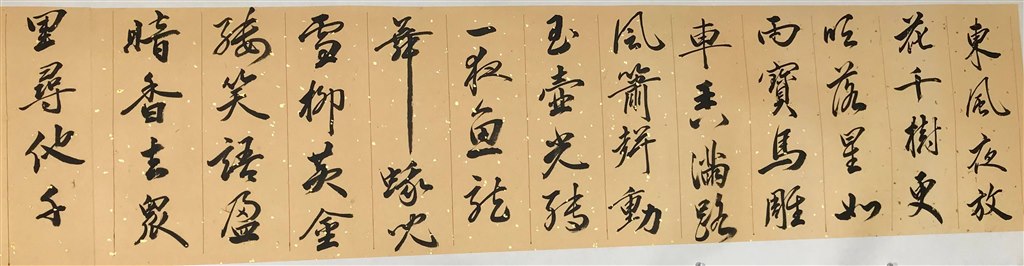 東風夜放
花千樹更
吹落星如
雨寶馬雕
車香滿路
風簫聲動
玉壺光轉
一夜魚龍
舞蛾兒
雪柳黃金
縷笑語盈
暗香去衆
里尋他千